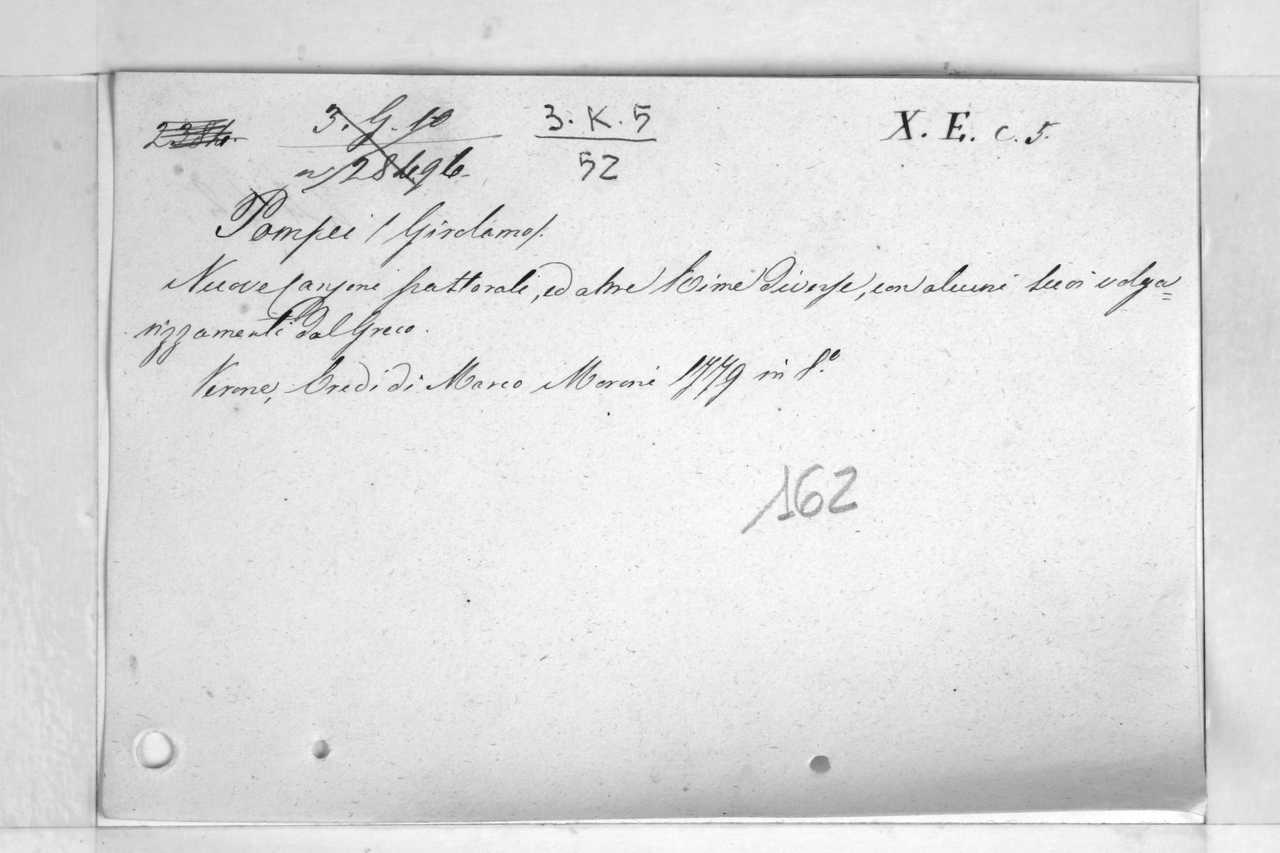 3. G. 10 3. K. 5 X. E. c. 5.
52
Pompei (Girolamo).
Nuove Canzoni pastorali, ed altre Rime diverse, con alcuni suoi volga=
rizzamenti dal Greco.
Verona, Eredi di Marco Moroni 1779 in 8.º
162